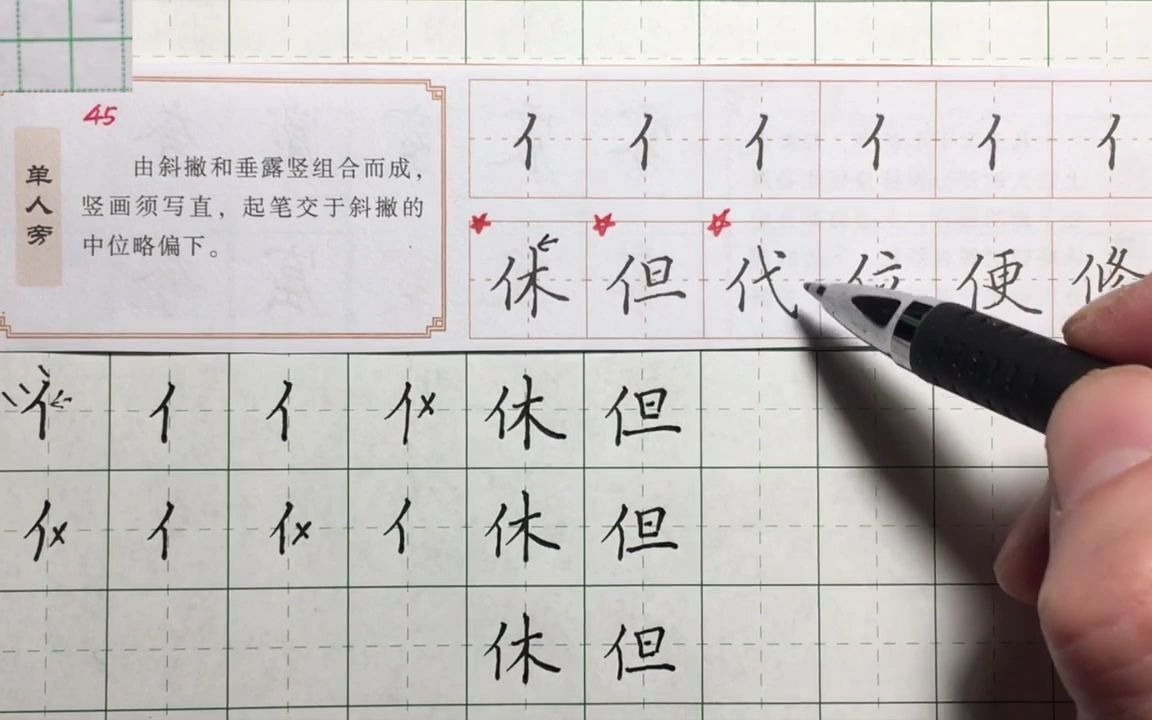 45
单人旁
由斜撇和垂露竖组合而成，
竖画须写直，起笔交于斜撇的
中位略偏下。
亻 亻 亻 亻 亻 亻
休 但 代 位 便 修
亻 亻 亻 亻× 休 但
亻× 亻 亻× 亻 休 但
休 但